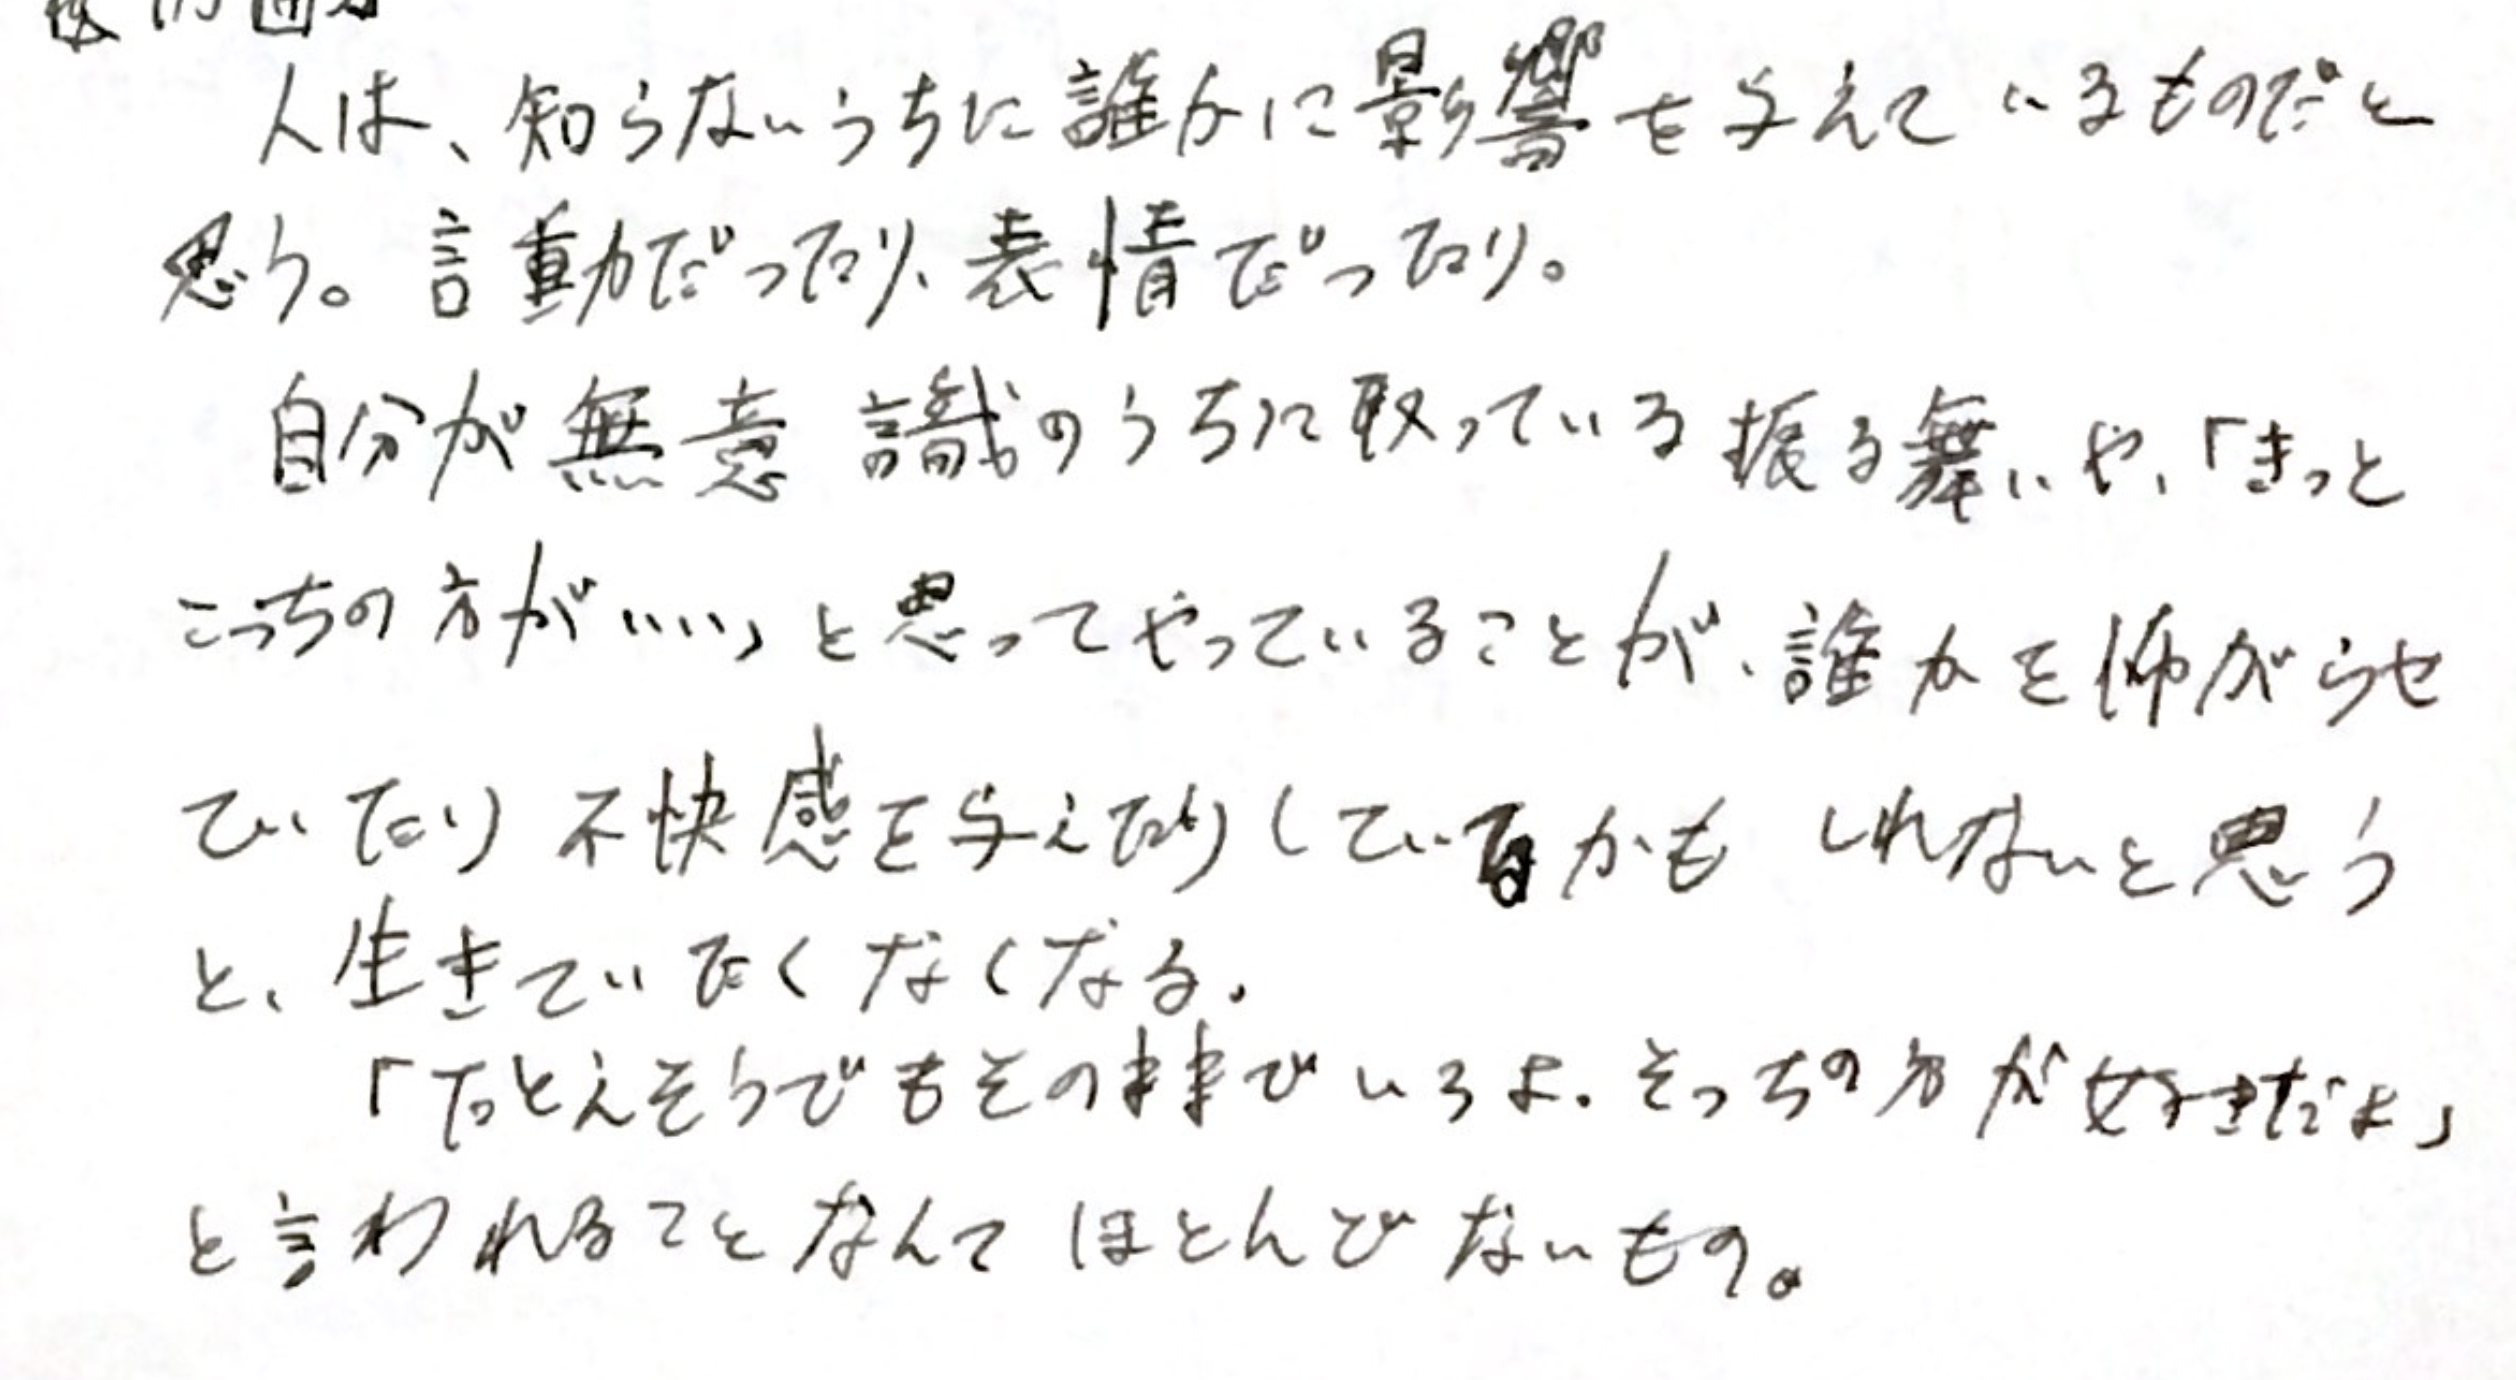 人は、知らないうちに誰かに影響を与えているものだと
思う。言動だったり、表情だったり。
自分が無意識のうちに取っている振る舞いや、「きっと
こっちの方がいい」と思ってやっていることが、誰かを怖がらせ
ていたり不快感を与えたりしているかもしれないと思う
と、生きていたくなくなる。
「たとえそうでもそのままでいろよ。そっちの方が好きだよ」
と言われることなんてほとんどないもの。